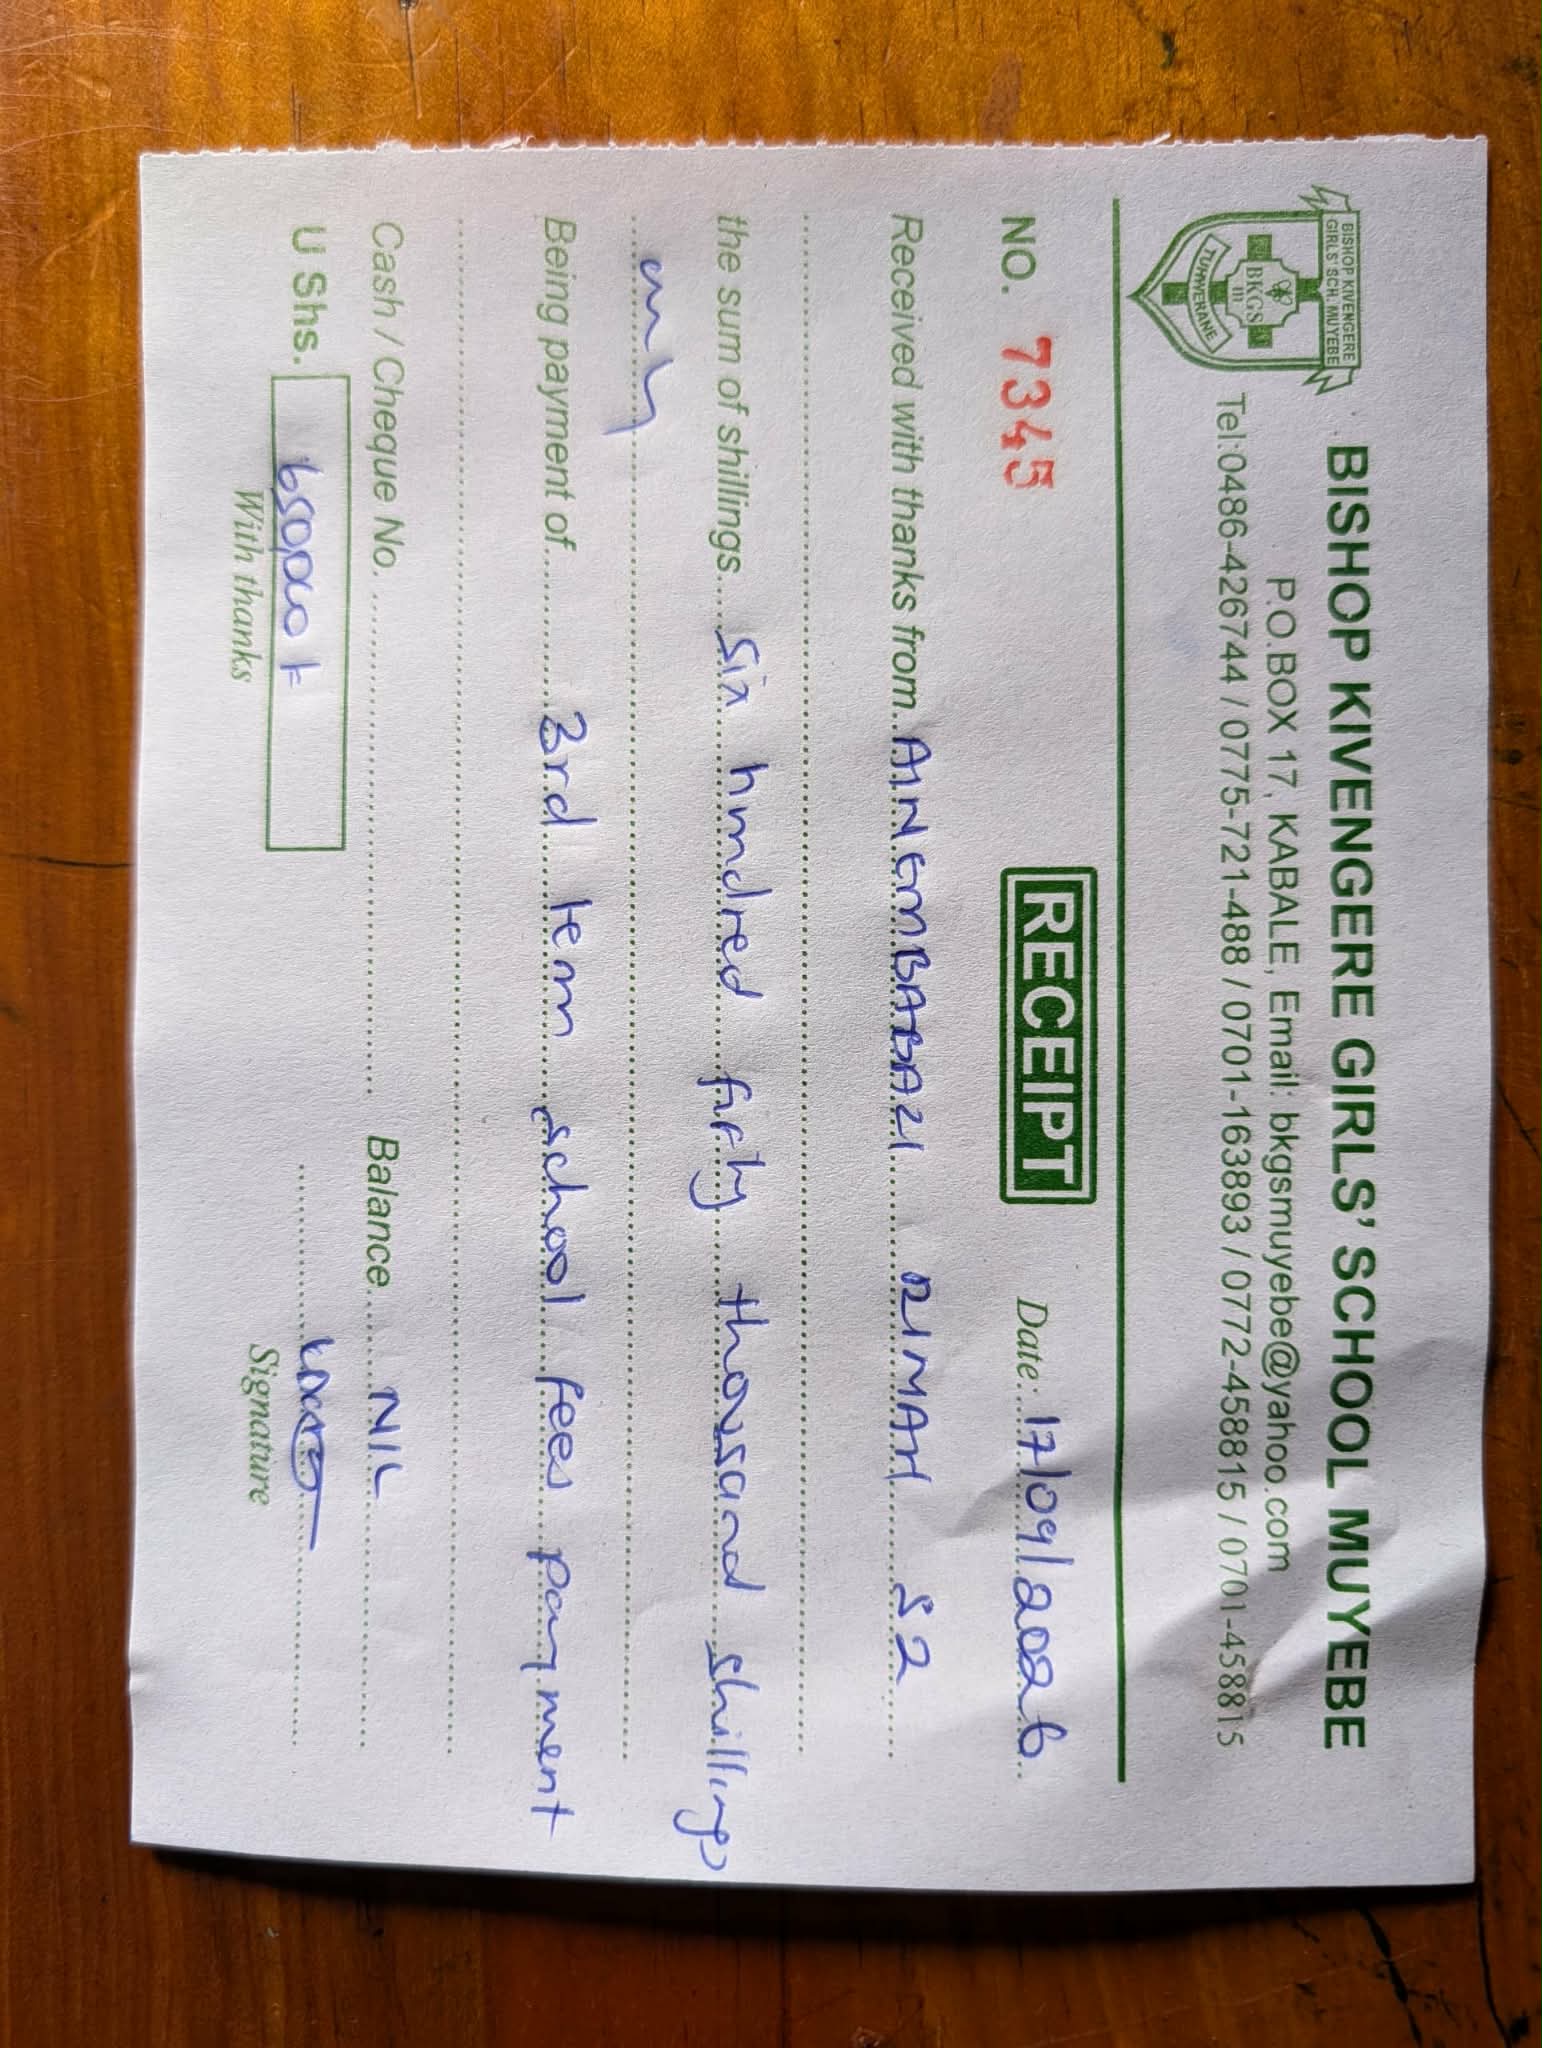 BISHOP KIVENGERE GIRLS' SCH. MUYEBE
BKGS
m
TUHWERANE
BISHOP KIVENGERE GIRLS' SCHOOL MUYEBE
P.O.BOX 17, KABALE, Email: bkgsmuyebe@yahoo.com
Tel:0486-426744 / 0775-721-488 / 0701-163893 / 0772-458815 / 0701-458815
NO. 7345 RECEIPT Date: 17/09/2026
Received with thanks from AINEMBABAZI RIMAH S2
the sum of shillings Six hundred fifty thousand shillings
only
Being payment of 3rd term school fees payment
Cash / Cheque No. Balance NIL
U Shs. 650,000 F
With thanks Signature